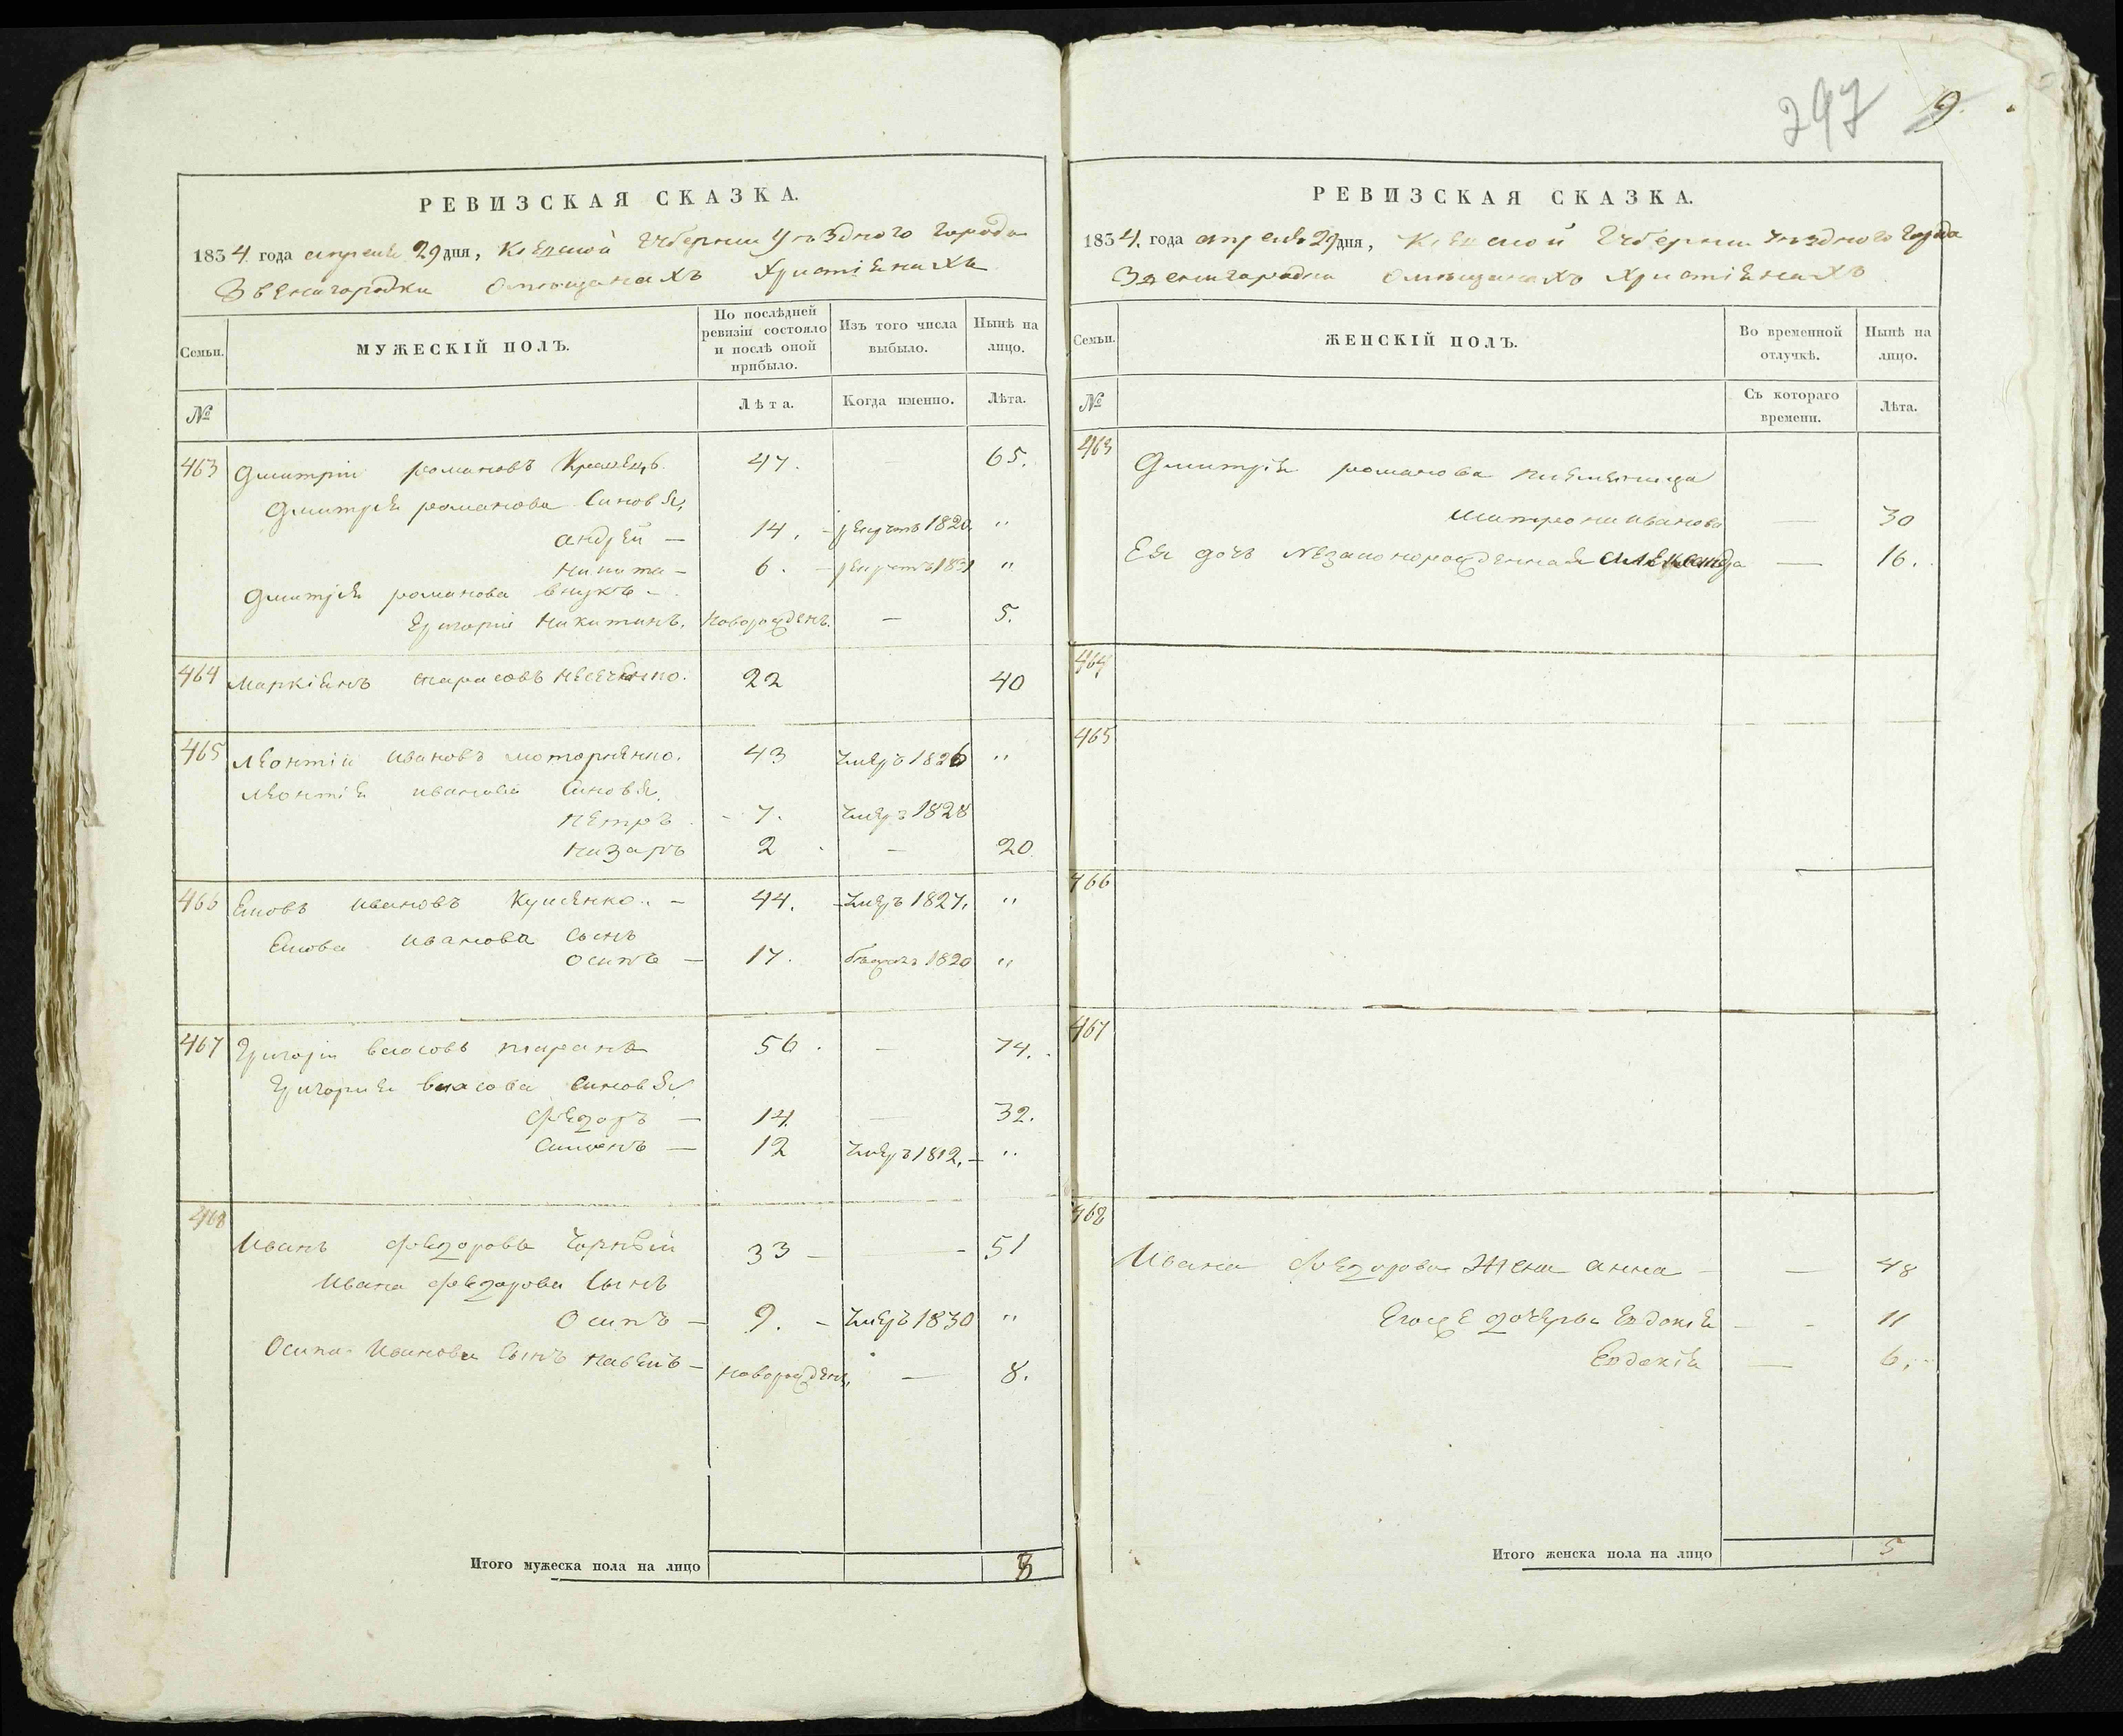 РЕВИЗСКАЯ СКАЗКА.
1834 года апреля 29 дня, Киевской Губернии Уѣзднаго Города
Звенигородки Омѣщанахъ Христіянахъ
Семьи. МУЖЕСКІЙ ПОЛЪ. По послѣдней ревизіи состояло и послѣ оной прибыло. Изъ того числа выбыло. Нынѣ на лицо.
№ Лѣта. Когда именно. Лѣта.
463 Дмитрій романовъ 47. — 65.
Дмитрія романова Синовья,
андрей — 14. – рекрутъ 1820. "
никита – 6. – рекрутъ 1831 "
Дмитрія романова внукъ –
Григорій Никитинъ. новорожденъ. — 5.
464 Маркіянъ тарасовъ 22 40
465 Леонтій Ивановъ моторненко. 43 Умеръ 1826 "
Леонтія иванова Синовья
Петръ – 7. Умеръ 1828
Назаръ 2 — 20
466 Яковъ Ивановъ Куценко. – 44. – Умеръ 1827. "
Якова Иванова сынъ
Осипъ – 17. бѣжалъ 1820 "
467 Григорій власовъ таранъ 56. — 74.
Григорія власова Синовья
Федоръ — 14. — 32.
Симонъ — 12 Умеръ 1812. – "
468
Иванъ Федоровъ Чорный 33 – – 51
Ивана Федорова Сынъ
Осипъ – 9. – Умеръ 1830 "
Осипа Иванова Сынъ Павелъ – новорожденъ. — 8.
Итого мужеска пола на лицо 8
297 9.
РЕВИЗСКАЯ СКАЗКА.
1834. года апреля 29 дня, Киевской Губернии Уѣзднаго Города
Звенигородки Омѣщанахъ Христіянахъ
Семьи. ЖЕНСКІЙ ПОЛЪ. Во временной отлучкѣ. Нынѣ на лицо.
№ Съ котораго времени. Лѣта.
463
Дмитрія романова племеница
Матрона Иванова — 30
Ея дочь незаконорожденная Александра — 16.
464
465
466
467
468
Ивана Федорова Жена анна – — 48
Егоже дочерьи Евдокія – – 11
Евдокія — 6.
Итого женска пола на лицо 5